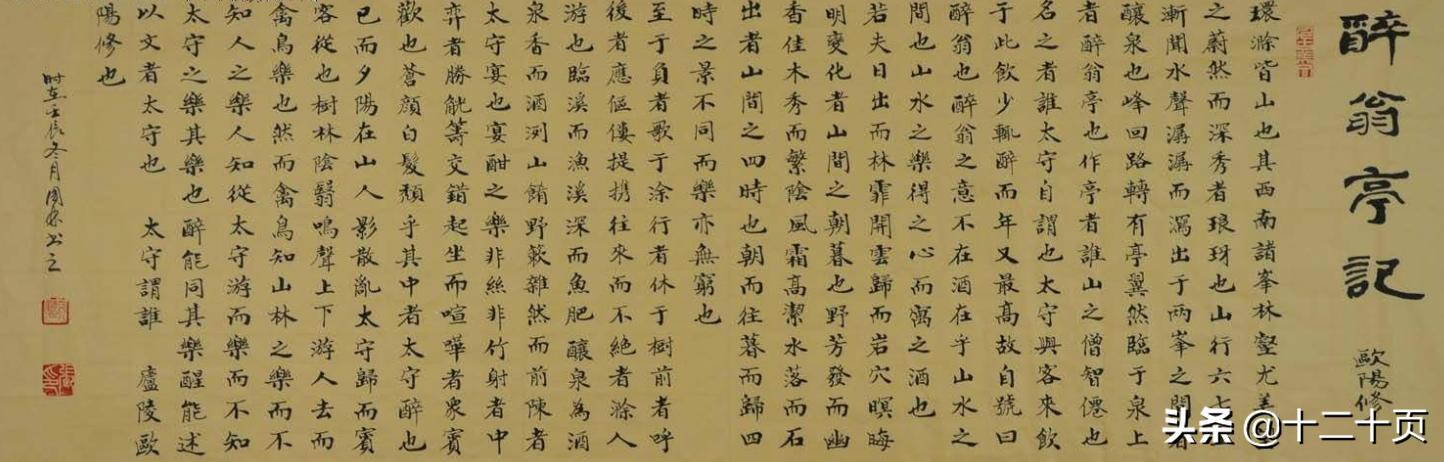 醉翁亭記
歐陽修
環滁皆山也其西南諸峯林壑尤美
之蔚然而深秀者琅玡也山行六七
漸聞水聲潺潺而瀉出于兩峯之間者
釀泉也峰回路轉有亭翼然臨于泉上
者醉翁亭也作亭者誰山之僧智僊也
名之者誰太守自謂也太守與客來飲
于此飲少輒醉而年又最高故自號曰
醉翁也醉翁之意不在酒在乎山水之
間也山水之樂得之心而寓之酒也
若夫日出而林霏開雲歸而岩穴暝晦
明變化者山間之朝暮也野芳發而幽
香佳木秀而繁陰風霜高潔水落而石
出者山間之四時也朝而往暮而歸四
時之景不同而樂亦無窮也
至于負者歌于涂行者休于樹前者呼
後者應傴僂提携往來而不絕者滁人
游也臨溪而漁溪深而魚肥釀泉為酒
泉香而酒洌山餚野蔌雜然而前陳者
太守宴也宴酣之樂非絲非竹射者中
弈者勝觥籌交錯起坐而喧嘩者衆賓
歡也蒼顏白髮頹乎其中者太守醉也
已而夕陽在山人影散亂太守歸而賓
客從也樹林陰翳鳴聲上下游人去而
禽鳥樂也然而禽鳥知山林之樂而不
知人之樂人知從太守游而樂而不知
太守之樂其樂也醉能同其樂醒能述
以文者太守也 太守謂誰 廬陵歐
陽修也
时在壬辰冬月周
头条@十二十页